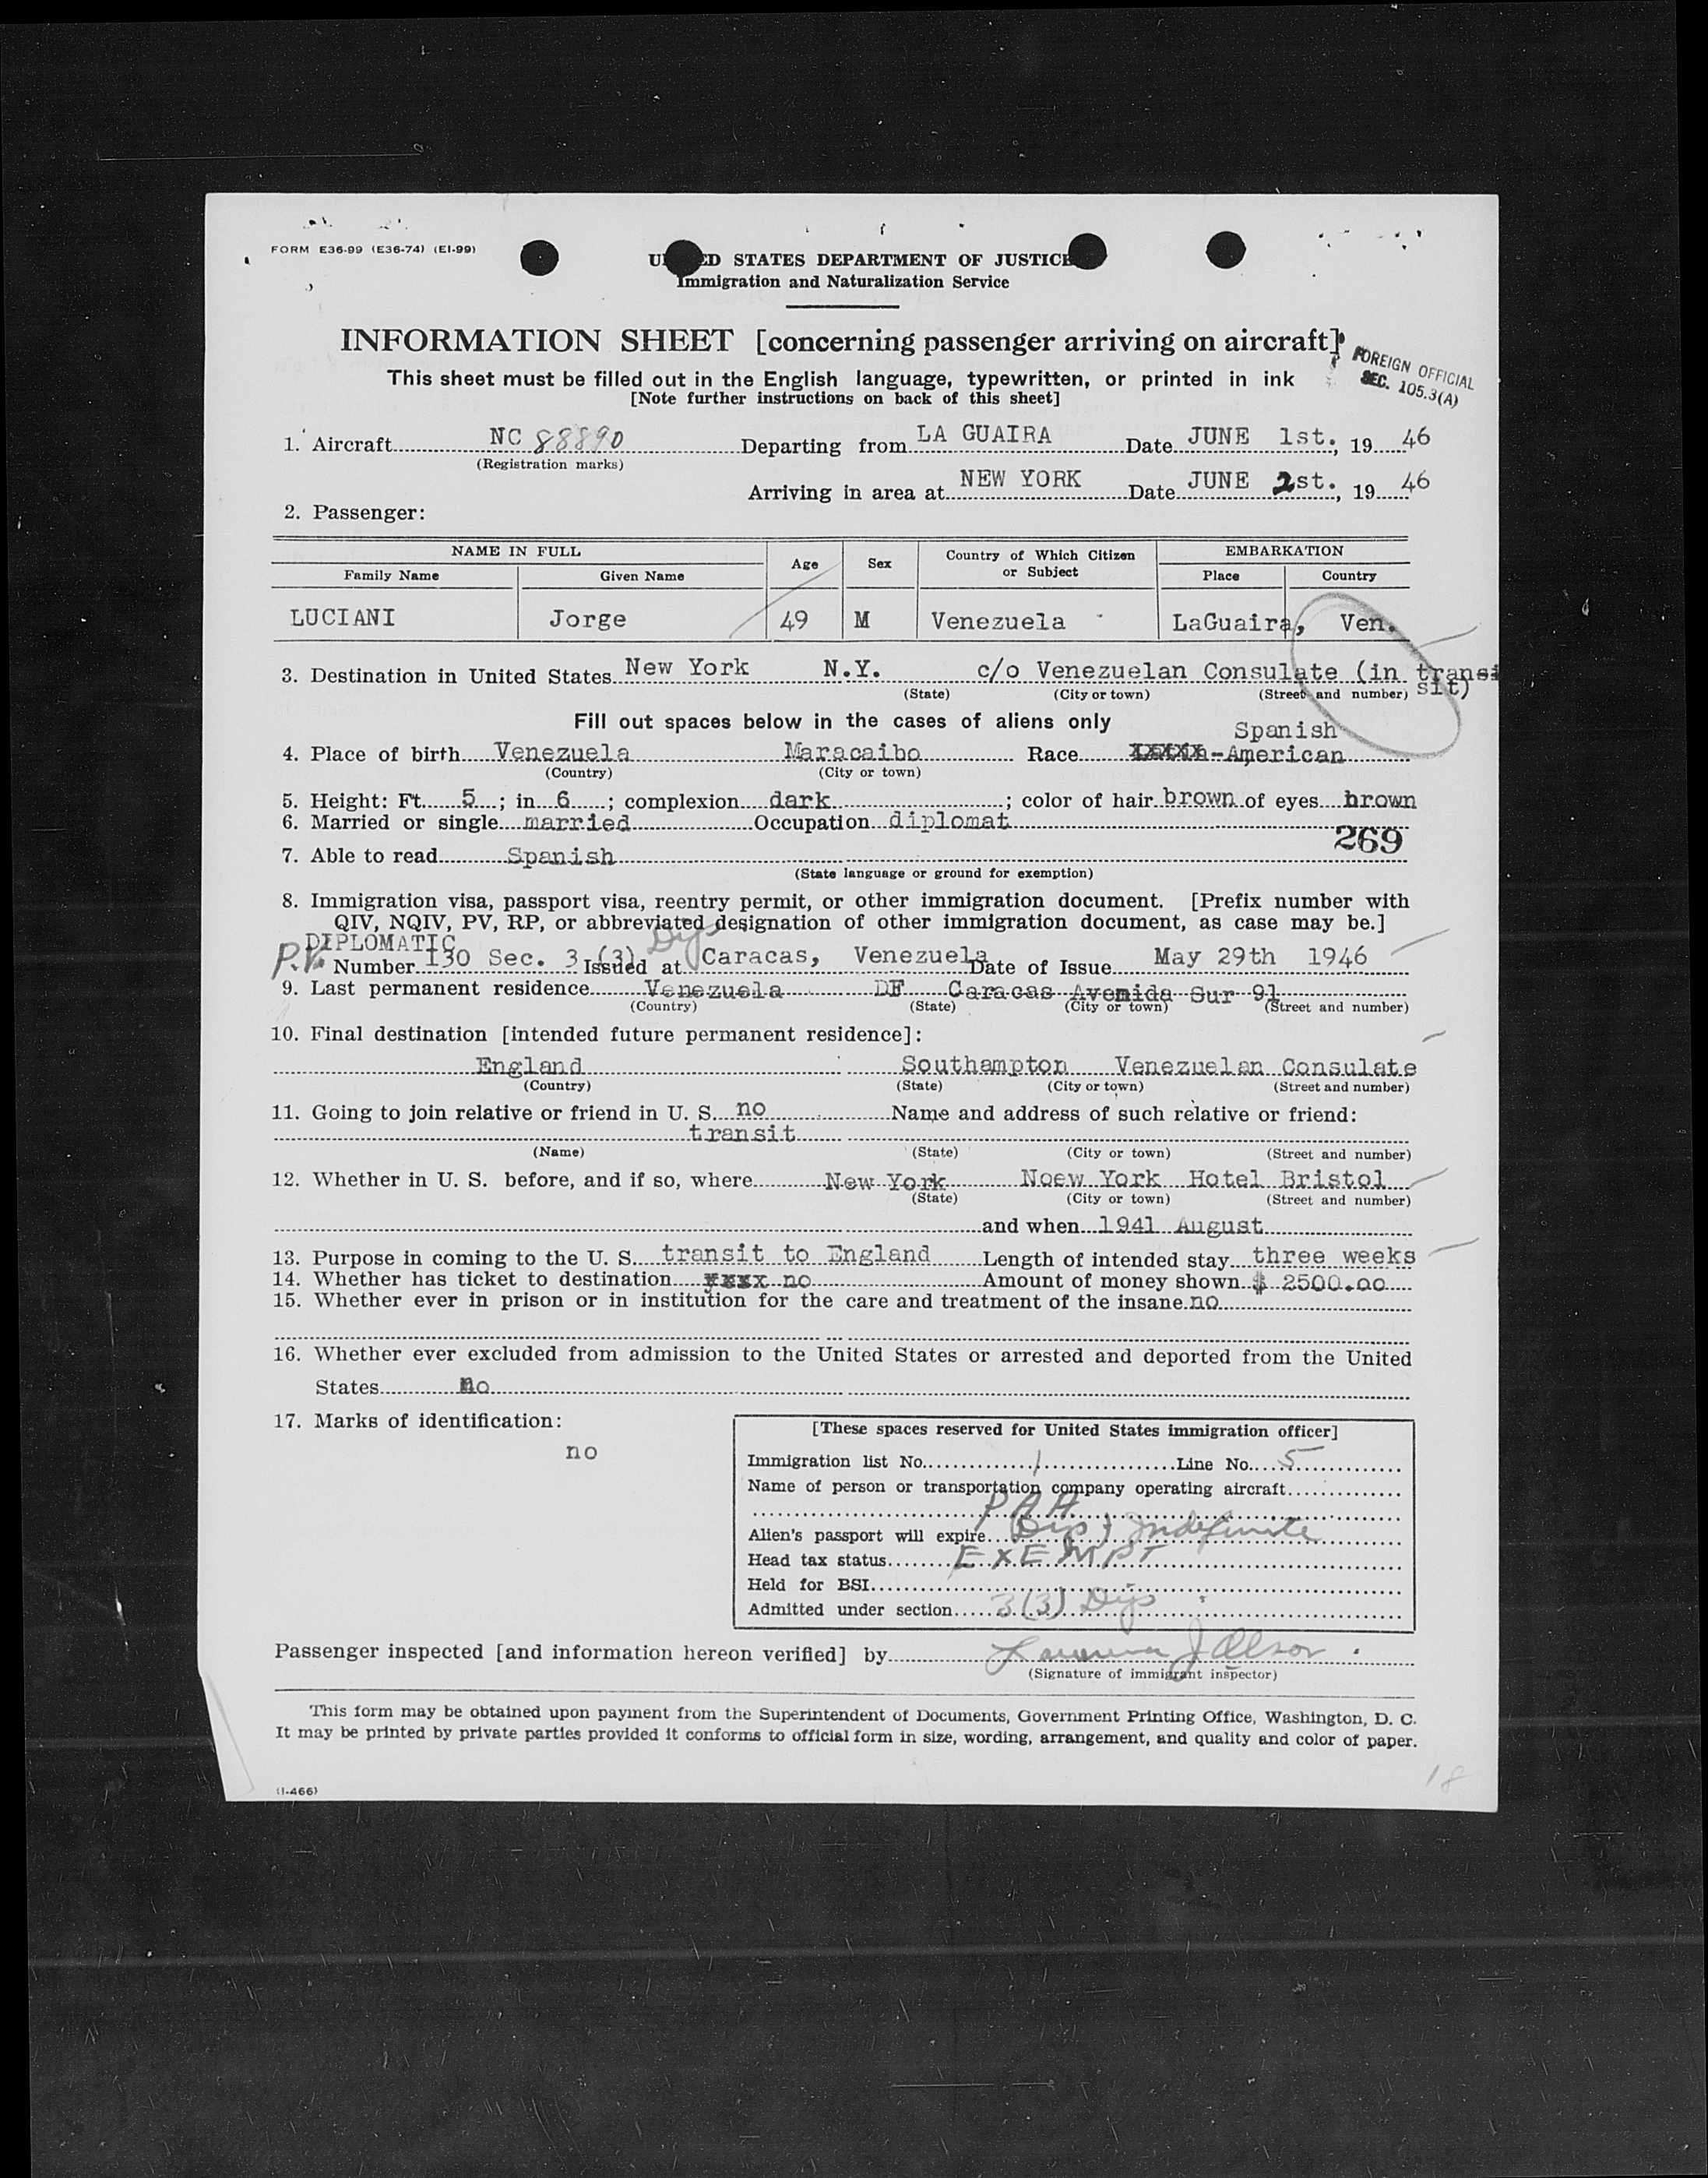 FORM E36-99 (E36-74) (EI-99)
UNITED STATES DEPARTMENT OF JUSTICE
Immigration and Naturalization Service
INFORMATION SHEET [concerning passenger arriving on aircraft]
FOREIGN OFFICIAL
SEC. 105.3(A)
This sheet must be filled out in the English language, typewritten, or printed in ink
[Note further instructions on back of this sheet]
1. Aircraft NC 88890 Departing from LA GUAIRA Date JUNE 1st., 19 46
(Registration marks)
Arriving in area at NEW YORK Date JUNE 2st., 19 46
2. Passenger:
NAME IN FULL Age Sex Country of Which Citizen or Subject EMBARKATION
Family Name Given Name Place Country
LUCIANI Jorge 49 M Venezuela LaGuaira, Ven.
3. Destination in United States New York N.Y. c/o Venezuelan Consulate (in transi
(State) (City or town) (Street and number) sit)
Fill out spaces below in the cases of aliens only
Spanish
4. Place of birth Venezuela Maracaibo Race -American
(Country) (City or town)
5. Height: Ft. 5 ; in. 6 ; complexion dark ; color of hair brown of eyes brown
6. Married or single married Occupation diplomat
269
7. Able to read Spanish
(State language or ground for exemption)
8. Immigration visa, passport visa, reentry permit, or other immigration document. [Prefix number with
QIV, NQIV, PV, RP, or abbreviated designation of other immigration document, as case may be.]
DIPLOMATIC Dip
P.V. Number I30 Sec. 3 (3) Issued at Caracas, Venezuela Date of Issue May 29th 1946
9. Last permanent residence Venezuela DF Caracas Avenida Sur 91
(Country) (State) (City or town) (Street and number)
10. Final destination [intended future permanent residence]:
England Southampton Venezuelan Consulate
(Country) (State) (City or town) (Street and number)
11. Going to join relative or friend in U. S. no Name and address of such relative or friend:
transit
(Name) (State) (City or town) (Street and number)
12. Whether in U. S. before, and if so, where New York Noew York Hotel Bristol
(State) (City or town) (Street and number)
and when 1941 August
13. Purpose in coming to the U. S. transit to England Length of intended stay three weeks
14. Whether has ticket to destination yxxx no Amount of money shown $ 2500.oo
15. Whether ever in prison or in institution for the care and treatment of the insane. no
16. Whether ever excluded from admission to the United States or arrested and deported from the United
States no
17. Marks of identification:
no
[These spaces reserved for United States immigration officer]
Immigration list No. 1 Line No. 5
Name of person or transportation company operating aircraft
PAA
Alien's passport will expire (Dip) Indefinite
Head tax status EXEMPT
Held for BSI
Admitted under section 3(3) Dip
Passenger inspected [and information hereon verified] by J Olson
(Signature of immigrant inspector)
This form may be obtained upon payment from the Superintendent of Documents, Government Printing Office, Washington, D. C.
It may be printed by private parties provided it conforms to official form in size, wording, arrangement, and quality and color of paper.
18
(I-466)